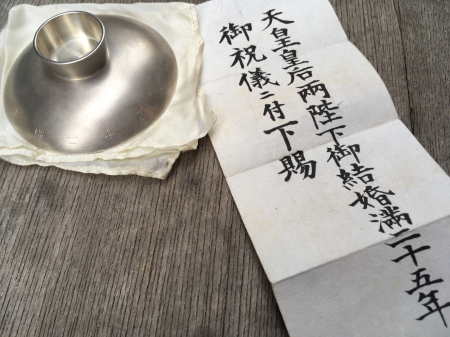 天皇皇后両陛下御結婚満二十五年
御祝儀ニ付下賜